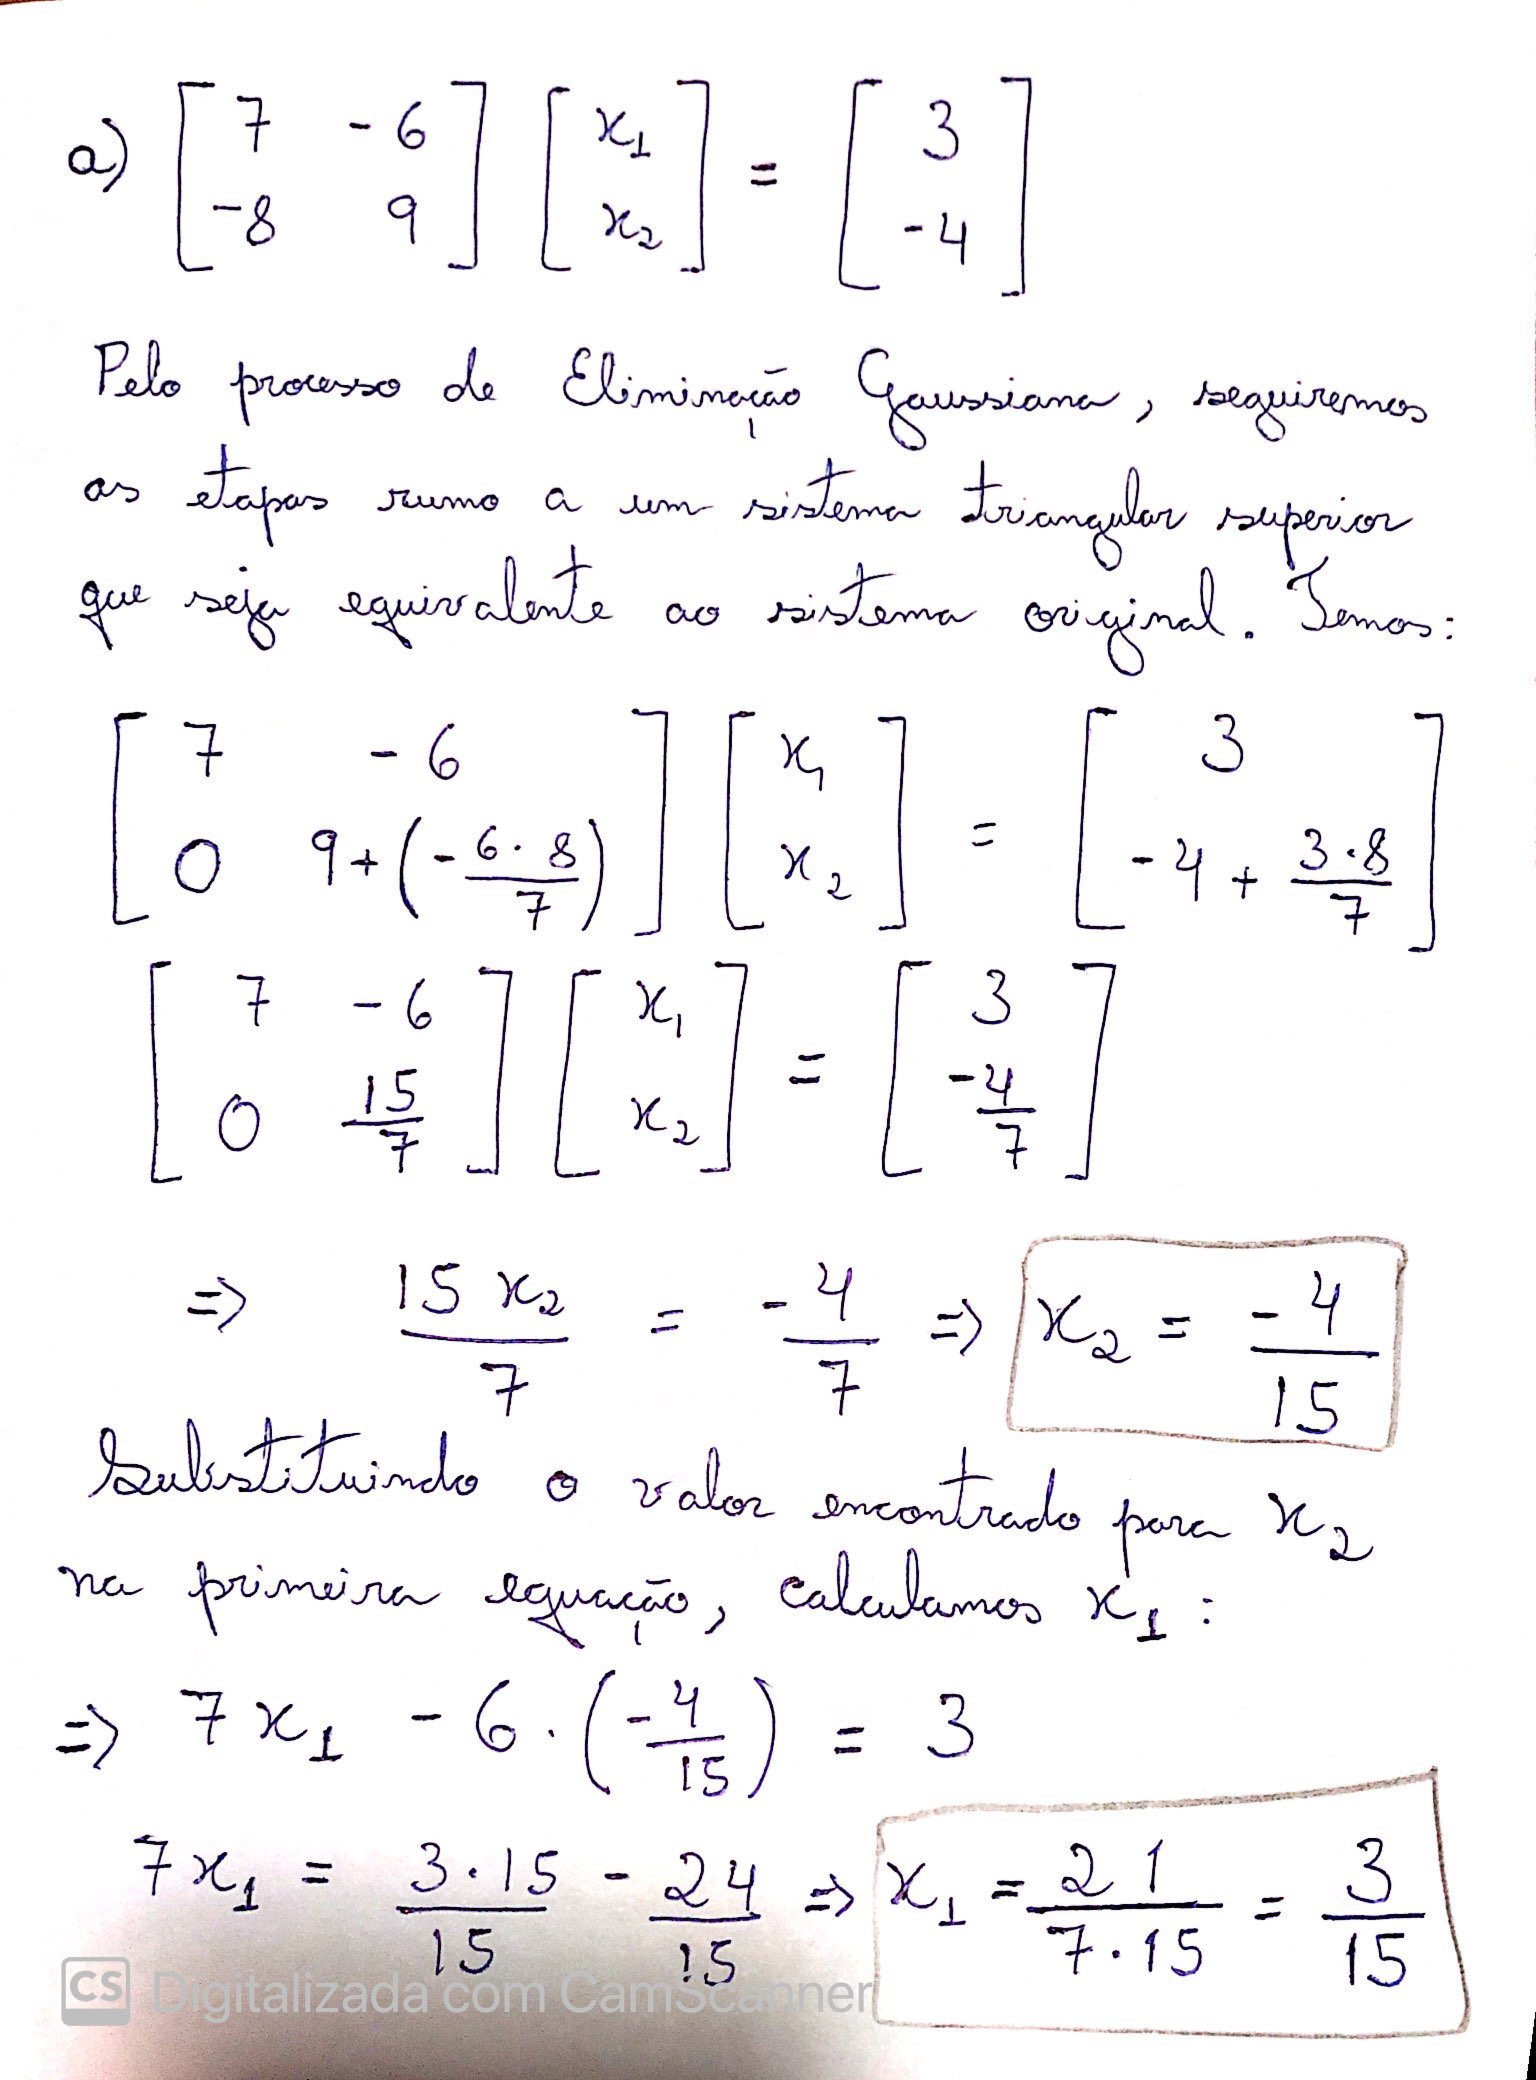 a) [ 7 -6 ; -8 9 ] [ x₁ ; x₂ ] = [ 3 ; -4 ]
Pelo processo de Eliminação Gaussiana, seguiremos
as etapas rumo a um sistema triangular superior
que seja equivalente ao sistema original. Temos:
[ 7 -6 ; 0 9+(-6·8/7) ] [ x₁ ; x₂ ] = [ 3 ; -4 + 3·8/7 ]
[ 7 -6 ; 0 15/7 ] [ x₁ ; x₂ ] = [ 3 ; -4/7 ]
=> 15 x₂/7 = -4/7 => x₂ = -4/15
Substituindo o valor encontrado para x₂
na primeira equação, calculamos x₁:
=> 7x₁ - 6·(-4/15) = 3
7x₁ = 3·15/15 - 24/15 => x₁ = 21/7·15 = 3/15
CS Digitalizada com CamScanner